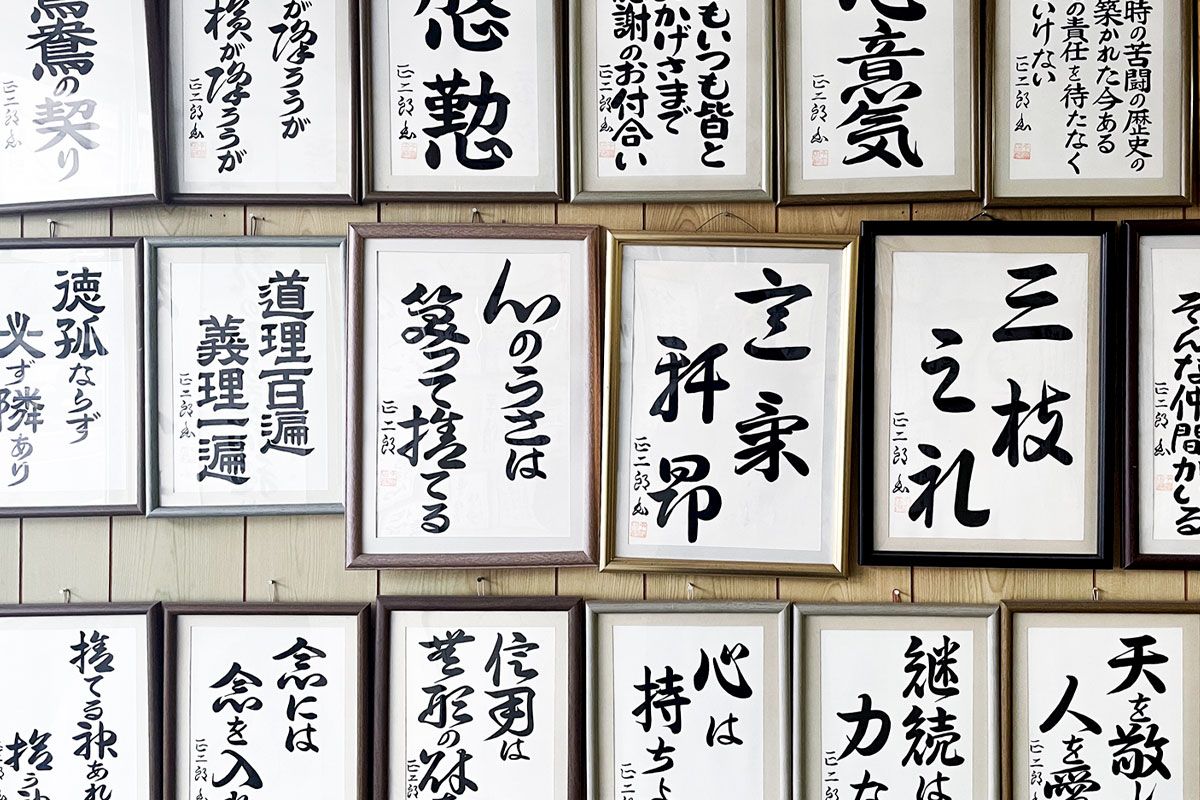 鴦の契り
正二郎書
が降ろうが
槍が降ろうが
正二郎書
慇懃
正二郎書
もいつも皆と
かげさまで
感謝のお付合い
正二郎書
心意気
正二郎書
時の苦闘の歴史の
築かれた今ある
の責任を待たなく
いけない
正二郎書
徳孤ならず
必ず隣あり
道理百遍
義理一遍
正二郎書
心のうさは
笑って捨てる
正二郎
意氣
軒昂
正二郎書
三枝
之礼
正二郎書
そんな仲間がいる
正二郎書
捨てる神あれ
拾う神
念には
念を入れ
正二郎
信用は
無形の財
正二郎
心は
持ちよ
正二郎
継続は
力な
正二郎
天を敬し
人を愛
正二郎